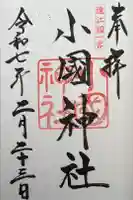 奉拝
遠江國一宮
小國神社
令和七年二月二十三日